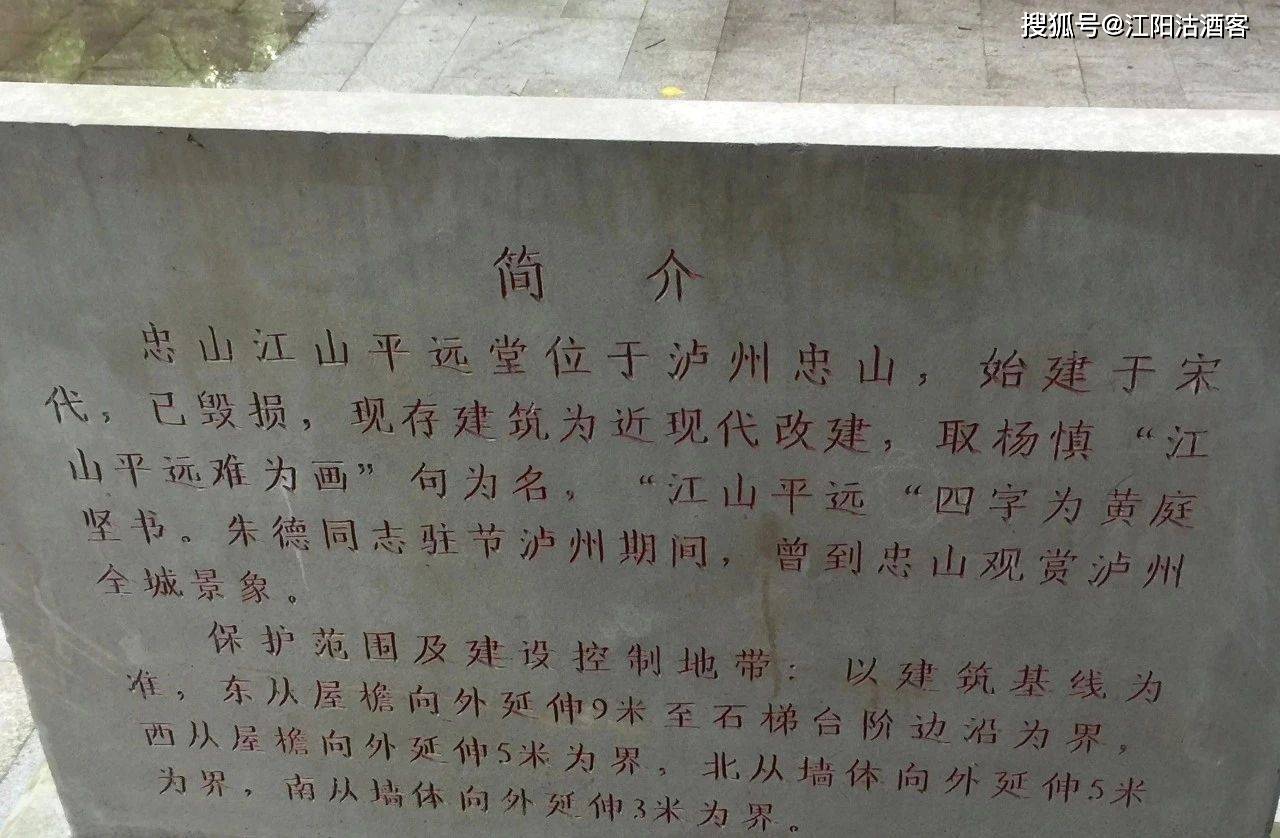 搜狐号@江阳沽酒客
简 介
忠山江山平远堂位于泸州忠山，始建于宋
代，已毁损，现存建筑为近现代改建，取杨慎“江
山平远难为画”句为名，“江山平远“四字为黄庭
坚书。朱德同志驻节泸州期间，曾到忠山观赏泸州
全城景象。
保护范围及建设控制地带：以建筑基线为
准，东从屋檐向外延伸9米至石梯台阶边沿为界，
西从屋檐向外延伸5米为界，北从墙体向外延伸5米
为界，南从墙体向外延伸3米为界。